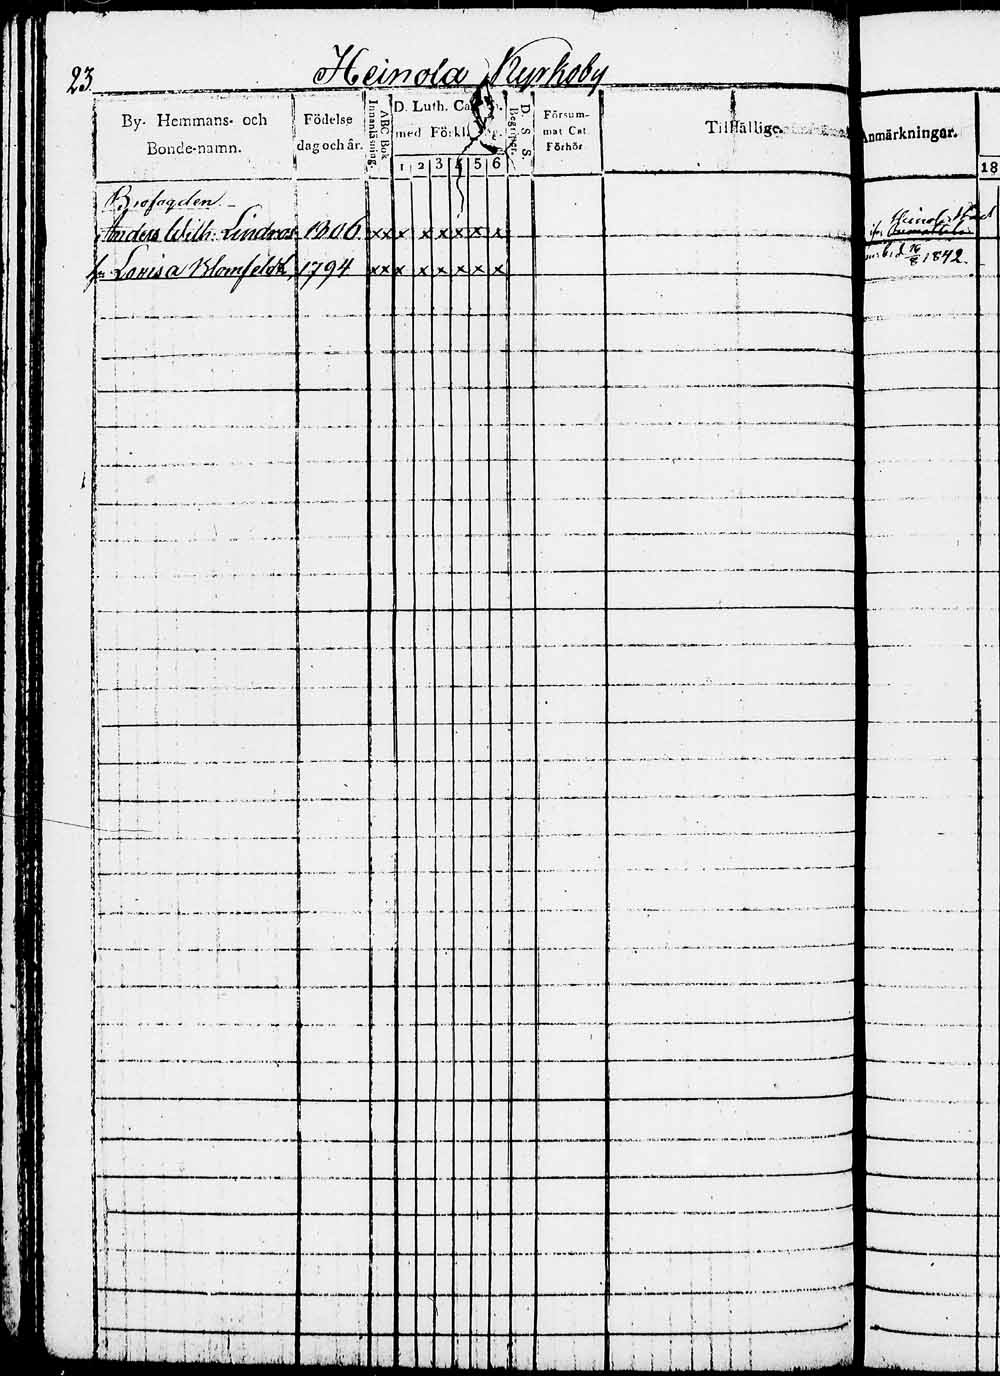 23
Heinola Kyrkoby
By- Hemmans- och
Bonde-namn.
Födelse
dag och år.
ABC Bok
Innanläsning.
D. Luth. Cat.
med Förkl.
1 2 3 4 5 6
D. S. S.
Begripet.
Försum-
mat Cat.
Förhör
Tillfällige
Anmärkningar.
18
Brofogden
Anders Wilh. Lindros 1806 x x x x x x x x
hu Lovisa Blomfeldt, 1794 x x x x x x x x
Heinola
6, d 16/8 1842.